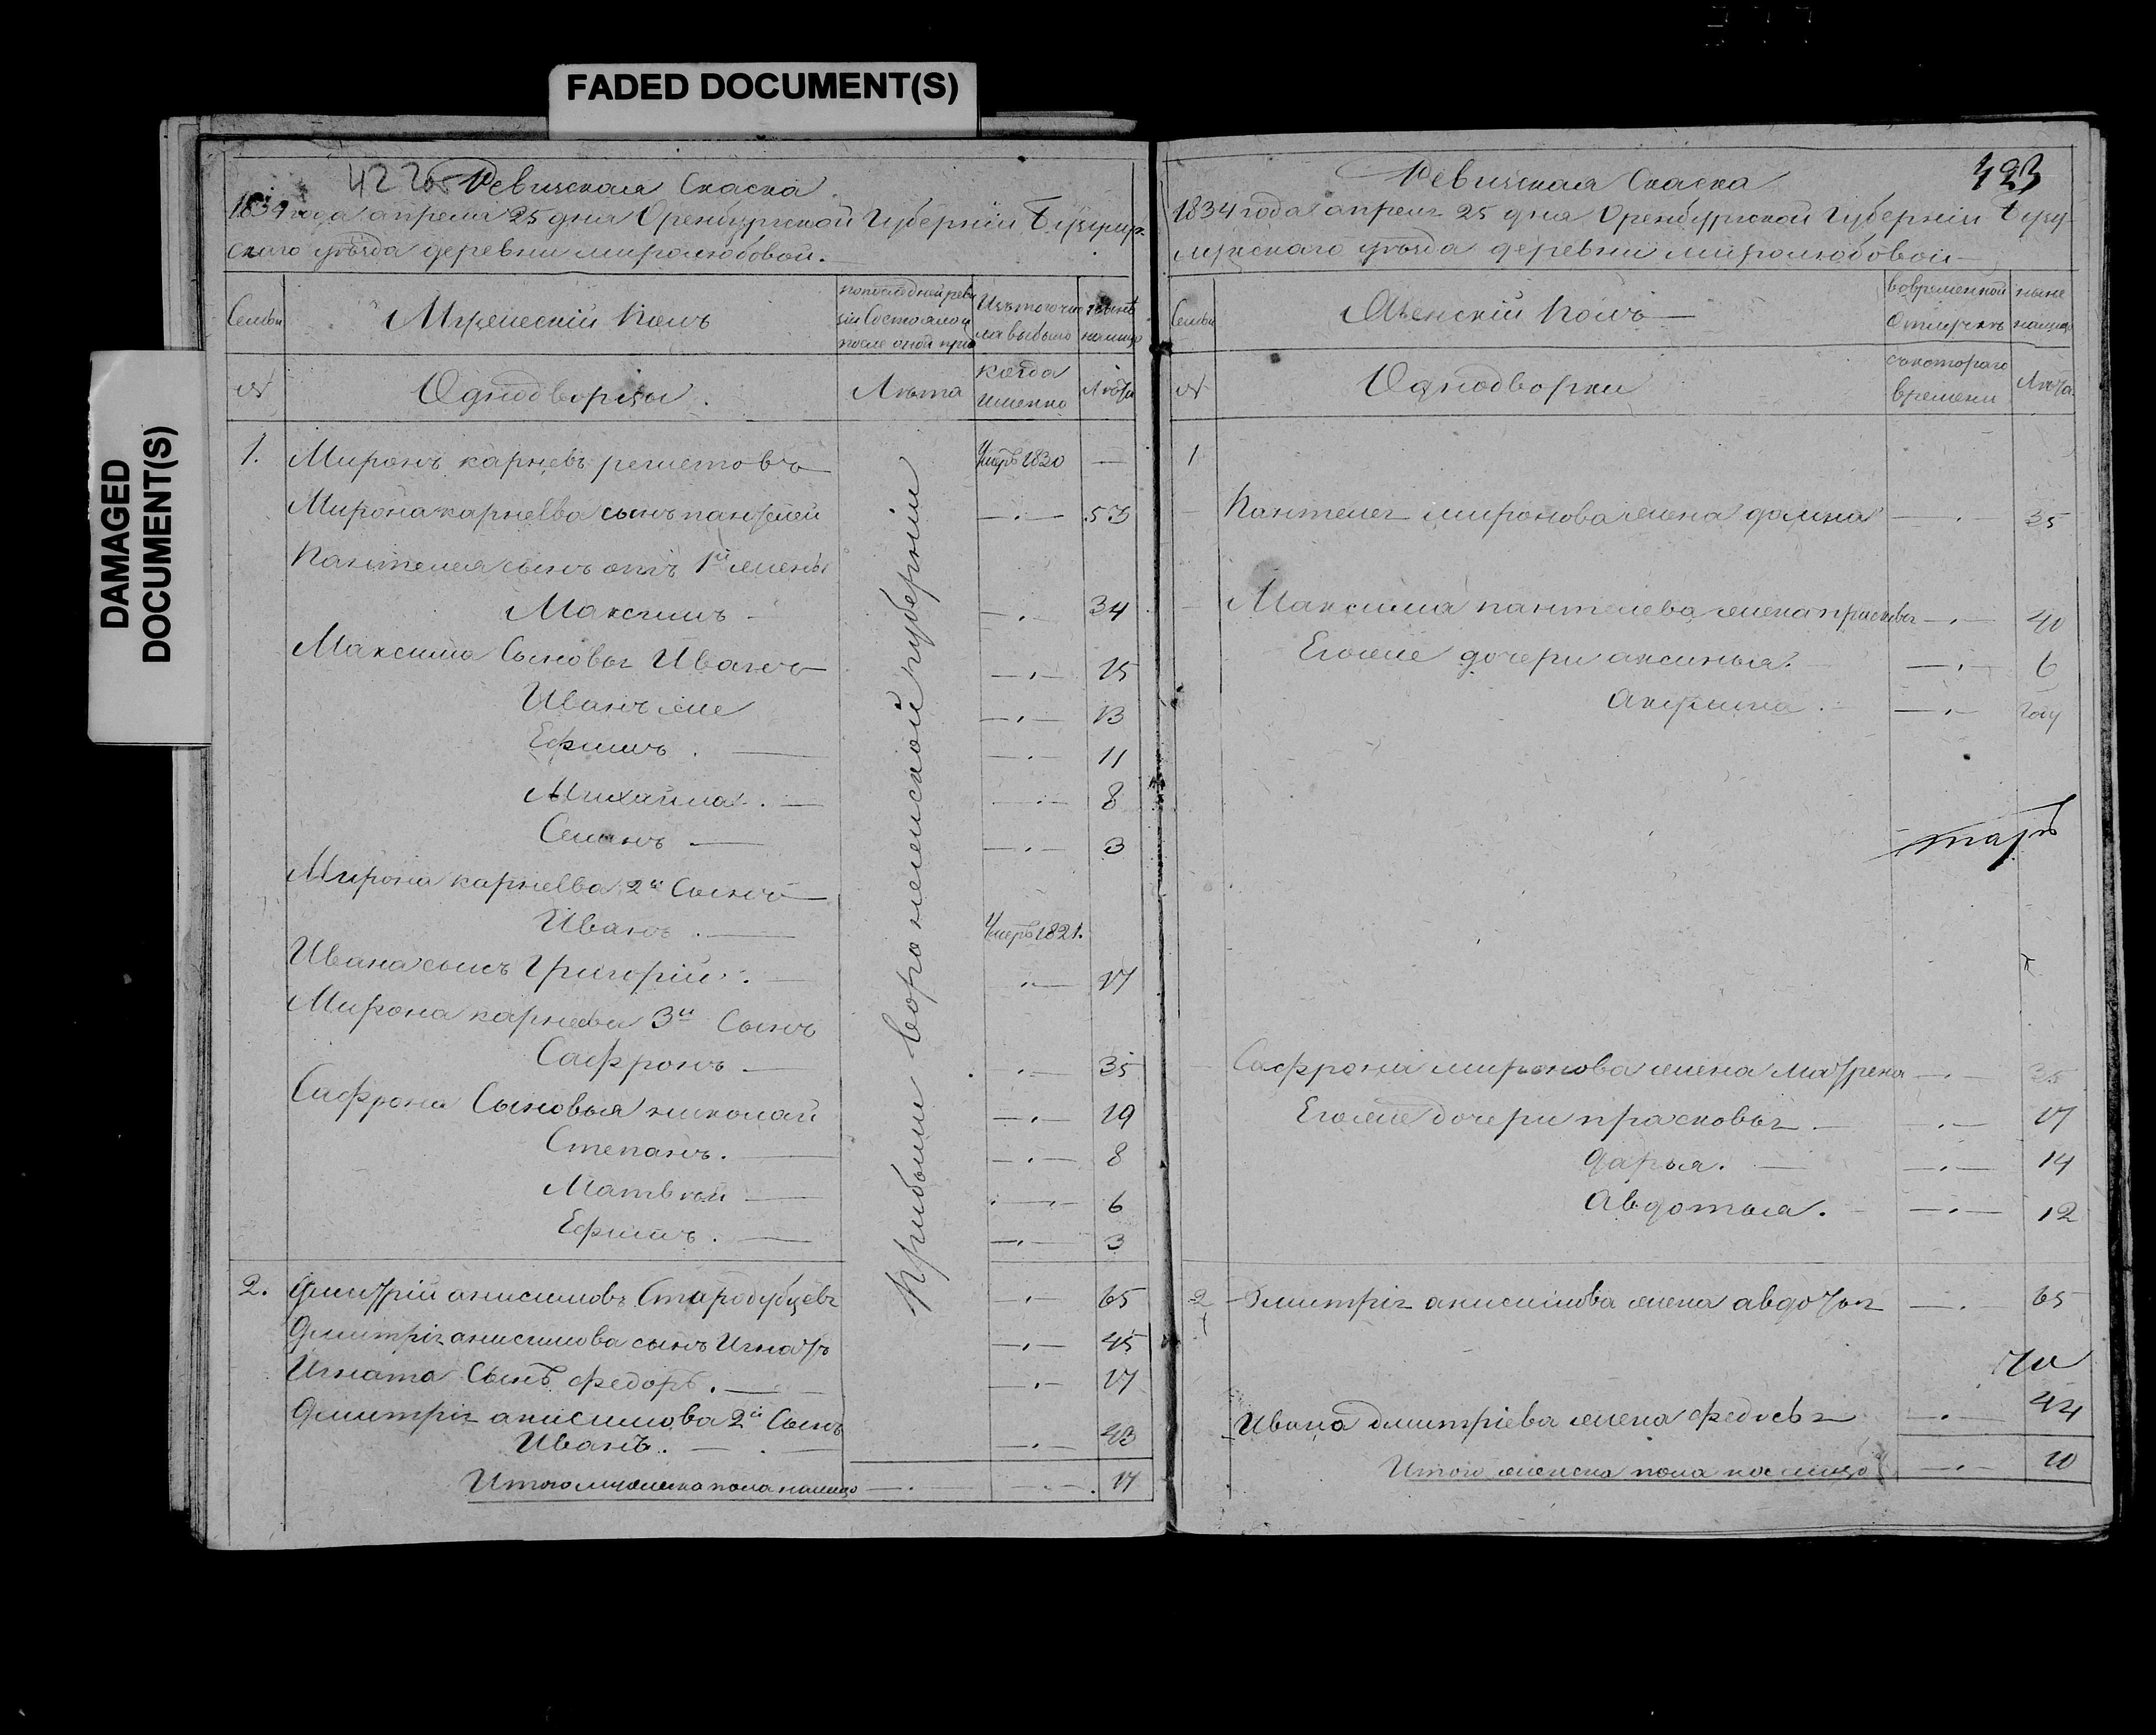 FADED DOCUMENT(S)
DAMAGED
DOCUMENT(S)
422об Ревизская Скаска
1834 года апреля 25 дня Оренбургской Губернiи Бузулук-
скаго уѣзда деревни миролюбовой.
Семьи
Мужескiй Полъ
по последней реви
зiи Состояло и
после оной при
Изъ того чи
ла выбыло
ныне
налицо
№
Однодворцы.
Лѣта
когда
именно
Лѣта
1. Миронъ карнеевъ решетовъ Умеръ 1830 —
Мирона карнеева сынъ пантелей 53
Пантелея сынъ отъ 1й жены
Максимъ 34
Максима Сыновья Иванъ 15
Иванъ же 13
Ефимъ. 11
Михайла. 8
Семенъ 3
Мирона карнеева 2й Сынъ
Иванъ. Умеръ 1821.
Ивана сынъ Григорiй. 17
Мирона карнеева 3й Сынъ
Сафронъ 35
Сафрона Сыновья николай 19
Степанъ. 8
Матвей 6
Ефимъ. 3
Прибыли воронежской губернiи
2. Дмитрiй анисимовъ Стародубцевъ 65
Дмитрiя анисимова сынъ Игнатъ 45
Игната Сынъ федоръ. 17
Дмитрiя анисимова 2й Сынъ
Иванъ. 43
Итого мужеска пола налицо 17
423
Ревизская Скаска
1834 года апреля 25 дня Оренбургской Губернiи Бузу-
лукскаго уѣзда деревни миролюбовой
Семьи
Женскiй Полъ
во временной
Отлучкѣ
ныне
налицо
№
Однодворки
съ котораго
времени
Лѣта
1
Пантелея миронова жена домна 35
Максима пантелеева жена прасковья 40
Его же дочери аксинья. 6
Акулина. году
Сафрона миронова жена матрена 35
Его же дочери прасковья 17
дарья. 14
Авдотья. 12
2 Дмитрiя анисимова жена авдотья 65
Ивана дмитрiева жена федосья 44
Итого женска пола налицо 10